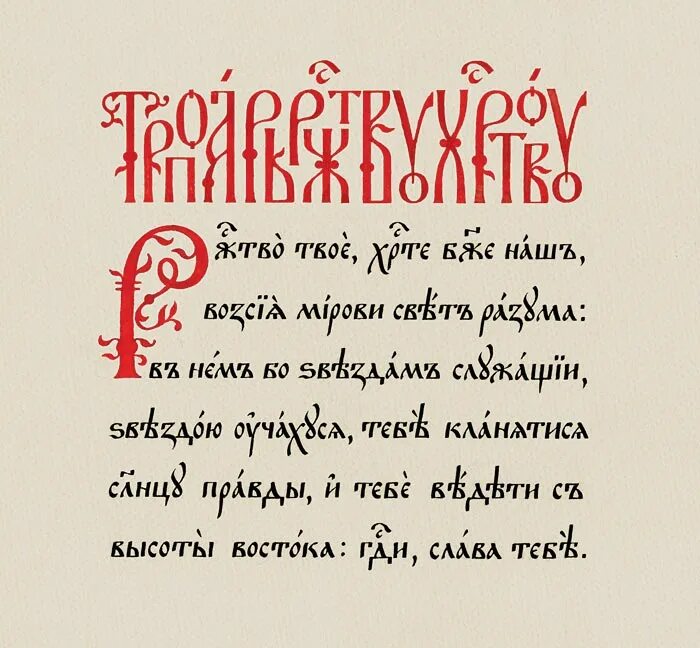 Тропарь ржⷭ҇тву хрⷭ҇то́ву
Рⷤ҇тво̀ твоѐ, хрⷭ҇те́ бж҃е на́шъ,
возсїѧ̀ мі́рови свѣ́тъ ра́зума:
въ не́мъ бо ѕвѣзда́мъ служа́щїи,
ѕвѣздо́ю оу҆ча́хусѧ, тебѣ̀ кла́нѧтисѧ
сл҃нцу пра́вды, и҆ тебѐ вѣ́дѣти съ
высоты̀ восто́ка: гдⷭ҇и, сла́ва тебѣ̀.